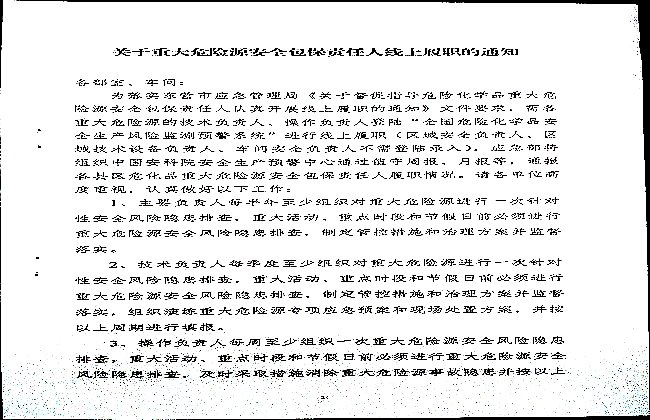 关于重大危险源安全包保责任人线上履职的通知
各部室、车间：
为落实东营市应急管理局《关于督促指导危险化学品重大危
险源安全包保责任人认真开展线上履职的通知》文件要求，需各
重大危险源的技术负责人、操作负责人登陆“全国危险化学品安
全生产风险监测预警系统”进行线上履职（区域安全负责人、区
域技术设备负责人、车间安全负责人不需登陆录入）。应急部将
组织中国安科院安全生产预警中心通过值守周报、月报等，通报
各县区危化品重大危险源安全包保责任人履职情况。请各单位高
度重视，认真做好以下工作：
1、主要负责人每半年至少组织对重大危险源进行一次针对
性安全风险隐患排查，重大活动、重点时段和节假日前必须进行
重大危险源安全风险隐患排查，制定管控措施和治理方案并监督
落实。
2、技术负责人每季度至少组织对重大危险源进行一次针对
性安全风险隐患排查，重大活动、重点时段和节假日前必须进行
重大危险源安全风险隐患排查，制定管控措施和治理方案并监督
落实，组织演练重大危险源专项应急预案和现场处置方案，并按
以上周期进行填报。
3、操作负责人每周至少组织一次重大危险源安全风险隐患
排查，重大活动、重点时段和节假日前必须进行重大危险源安全
风险隐患排查，及时采取措施消除重大危险源事故隐患并按以上